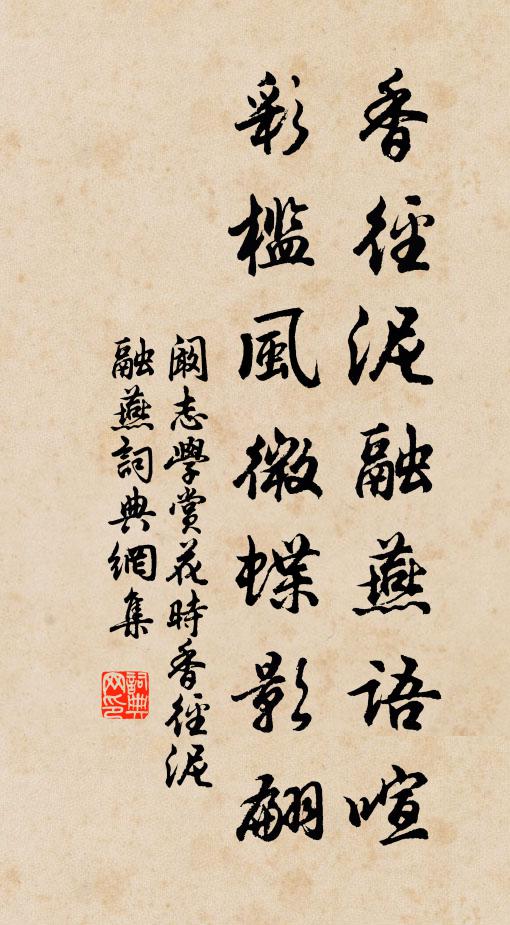 香徑泥融燕語喧
彩檻風微蝶影翩
闞志學賞花時香徑泥
融燕詞典網集
詞典網印